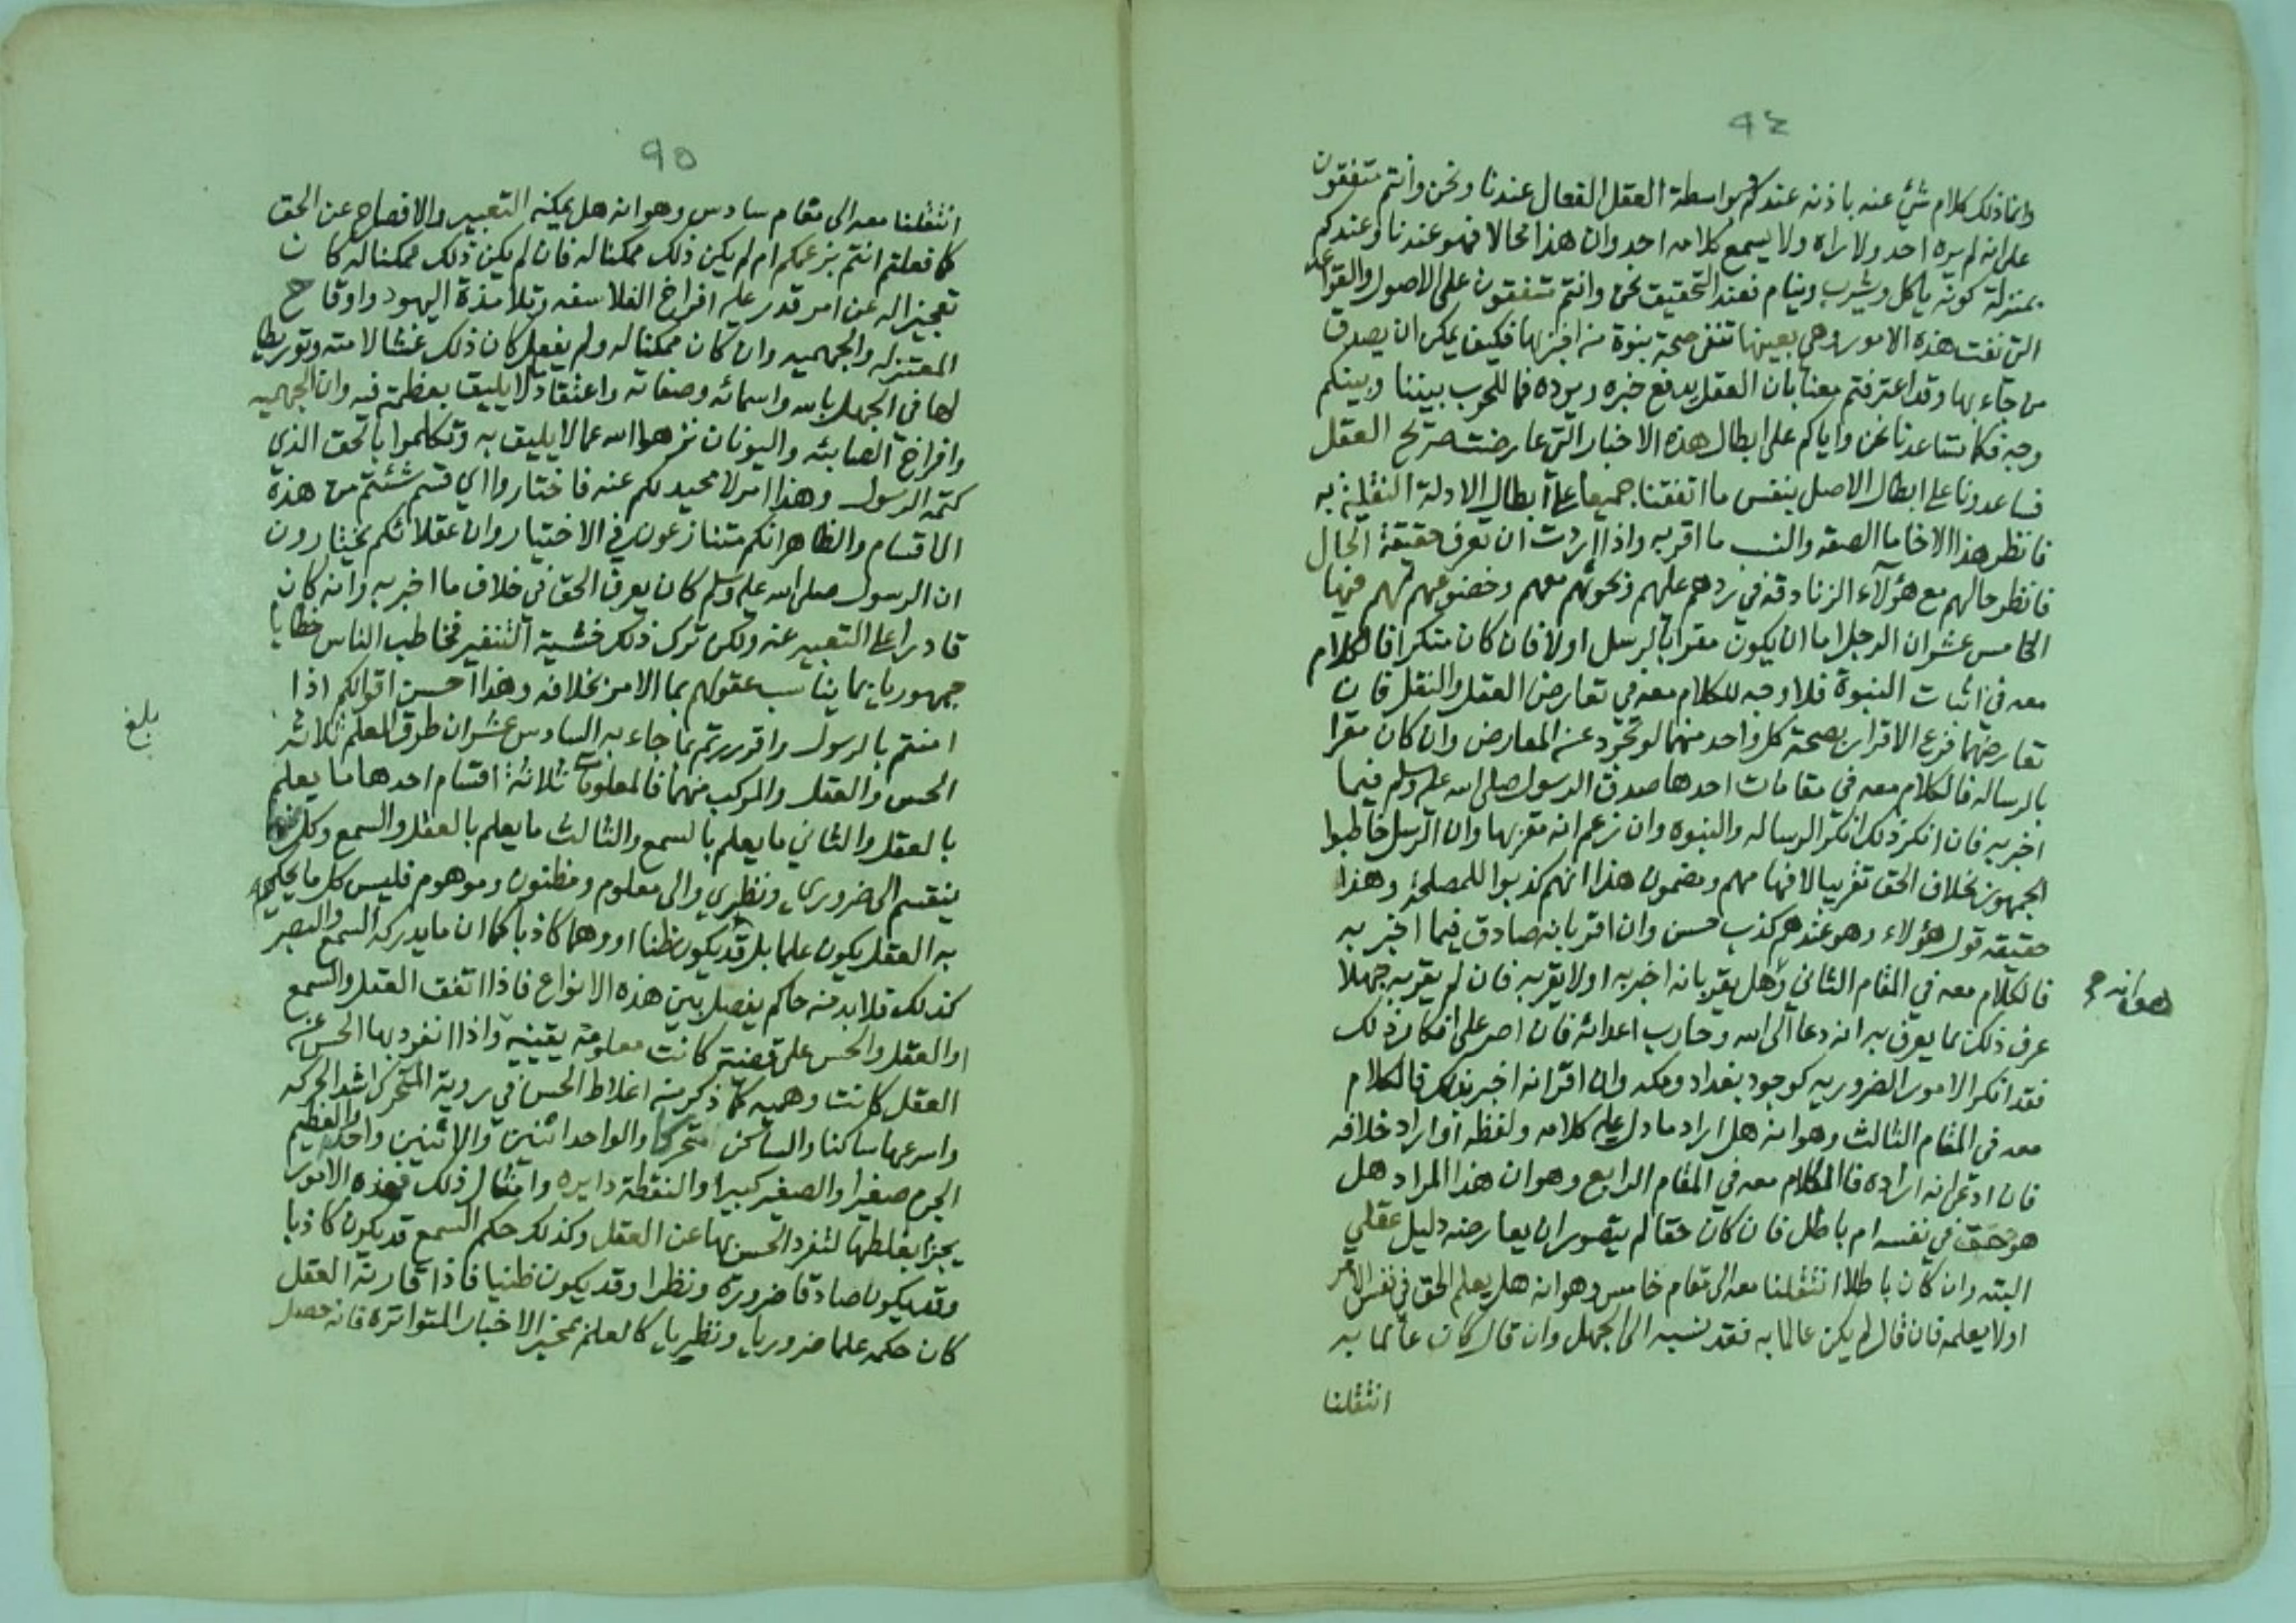 ٩٤
وانما ذلك كلام شيء عنه باذنه عندكم وبواسطة العقل الفعال عندنا ونحن وانتم متفقون
على انه لم يره احد ولا يراه ولا يسمع كلامه احد وان هذا محالا فهو عندنا وعندكم
بمنزلة كونه ياكل ويشرب وينام فعند التحقيق نحن وانتم متفقون على الاصول والقواعد
التي نفت هذه الامور وهي بعينها تنفي صحة نبوة من اخبر بها فكيف يمكن ان يصدق
من جاء بها وقد اعترفتم معنا بان العقل يدفع خبره ويرده فما للحرب بيننا وبينكم
وجه فكما تساعدنا نحن واياكم على ابطال هذه الاخبار التي عارضت صريح العقل
فساعدونا على ابطال الاصل بنفس ما اتفقنا جميعا على ابطال الادلة النقلية به
فانظر هذا الاخا ما الصقه والنسب ما اقربه واذا اردت ان تعرف حقيقة الحال
فانظر حالهم مع هؤلاء الزنادقه في ردهم عليهم ونحوهم معهم وخضوعهم لهم فيها
الخامس عشر ان الرجل اما ان يكون مقرا بالرسل اولا فان كان منكرا فالكلام
معه في اثبات النبوة فلا وجه للكلام معه في تعارض العقل والنقل فان
تعارضهما فرع الاقرار بصحة كل واحد منهما لو تجرد عن المعارض وان كان مقرا
بالرساله فالكلام معه في مقامات احدها صدق الرسول صلى الله عليه وسلم فيما
اخبر به فان انكر ذلك انكر الرساله والنبوه وان زعم انه مقر بها وان الرسل خاطبوا
الجمهور بخلاف الحق تقريبا لافهامهم ومضمون هذا انهم كذبوا للمصلحة وهذا
حقيقه قول هؤلاء وهو عندهم كذب حسن وان اقر بانه صادق فيما اخبر به
فالكلام معه في المقام الثاني وهل يقر بانه اخبر به اولا يقر به فان لم يقر به جهلا
وهو انه صح
عرف ذلك بما يعرف به انه دعا الى الله وحارب اعدائه فان اصر على انكار ذلك
فقد انكر الامور الضروريه كوجود بغداد ومكه وان اقر انه اخبر بذلك فالكلام
معه في المقام الثالث وهو انه هل اراد ما دل عليه كلامه ولفظه او اراد خلافه
فان ادعى انه اراده فالكلام معه في المقام الرابع وهو ان هذا المراد هل
هو حق في نفسه ام باطل فان كان حقا لم يتصور ان يعارضه دليل عقلي
البته وان كان باطلا انتقلنا معه الى مقام خامس وهو انه هل يعلم الحق في نفس الامر
اولا يعلمه فان قال لم يكن عالما به فقد نسبه الى الجهل وان قال كان عالما به
انتقلنا
٩٥
انتقلنا معه الى مقام سادس وهو انه هل يمكنه التعبير والافصاح عن الحق
كما فعلتم انتم بزعمكم ام لم يكن ذلك ممكنا له فان لم يكن ذلك ممكنا له كان
تعجيزا له عن امر قدر عليه افراخ الفلاسفه وتلامذة اليهود واوقاح
المعتزله والجهميه وان كان ممكنا له ولم يفعل كان ذلك غشا لامته وتوريطا
لها في الجهل بالله واسمائه وصفاته واعتقاد ما لا يليق بعظمته فيه وان الجهميه
وافراخ الصابئه واليونان نزهوا الله عما لا يليق به وتكلموا بالحق الذي
كتمه الرسول وهذا امر لا محيد لكم عنه فاختاروا اي قسم شئتم من هذه
الاقسام والظاهر انكم متنازعون في الاختيار وان عقلائكم يختارون
ان الرسول صلى الله عليه وسلم كان يعرف الحق في خلاف ما اخبر به وانه كان
قادرا على التعبير عنه ولكن ترك ذلك خشية التنفير فخاطب الناس خطابا
جمهوريا بما يناسب عقولهم بما الامر بخلافه وهذا احسن اقوالكم اذا
امنتم بالرسول واقررتم بما جاء به السادس عشر ان طرق العلم ثلاثه
بلغ
الحس والعقل والمركب منهما فالمعلومات ثلاثة اقسام احدها ما يعلم
بالعقل والثاني ما يعلم بالسمع والثالث ما يعلم بالعقل والسمع وكل منها
ينقسم الى ضروري ونظري والى معلوم ومظنون وموهوم فليس كل ما يحكم
به العقل يكون علما بل قد يكون ظنا او وهما كاذبا كما ان ما يدركه السمع والبصر
كذلك فلا بد من حاكم يفصل بين هذه الانواع فاذا اتفق العقل والسمع
او العقل والحس على قضية كانت معلومة يقينيه واذا انفرد بها الحس عن
العقل كانت وهميه كما ذكر من اغلاط الحس في روية المتحرك اشد الحركه
واسرعها ساكنا والساكن متحركا والواحد اثنين والاثنين واحدا والعظيم
الجرم صغيرا والصغير كبيرا والنقطة دايره وامثال ذلك فهذه الامور
يجزم بغلطها لتفرد الحس بها عن العقل وكذلك حكم السمع قد يكون كاذبا
وقد يكون صادقا ضرورة ونظرا وقد يكون ظنيا فاذا قارنه العقل
كان حكمه علما ضروريا ونظريا كالعلم بمخبر الاخبار المتواترة فانه حصل